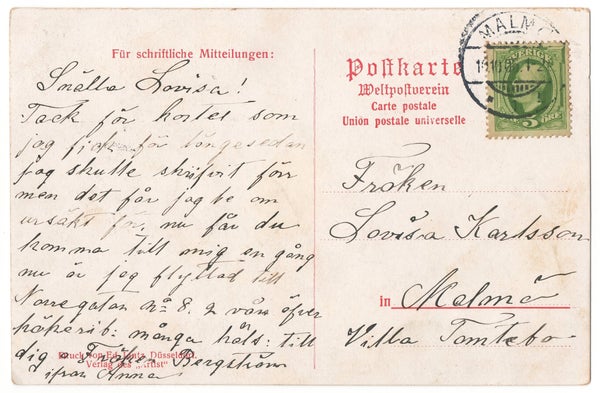 Für schriftliche Mitteilungen:
Snälla Lovisa!
Tack för kortet som
jag fick för längesedan
jag skulle skrifvit förr
men det får jag be om
ursäkt för, nu får du
komma till mig en gång
nu är jag flyttad till
Norregatan No 8. 2 vån öfver
många häls: till
dig Fröken Bergström
ifrån Anna
Druck von Düsseldorf
Verlag des „Artist"
Postkarte
Weltpostverein
Carte postale
Union postale universelle
MALMÖ
SVERIGE
5 ÖRE
Fröken
Lovisa Karlsson
in Malmö
Villa Tomtebo